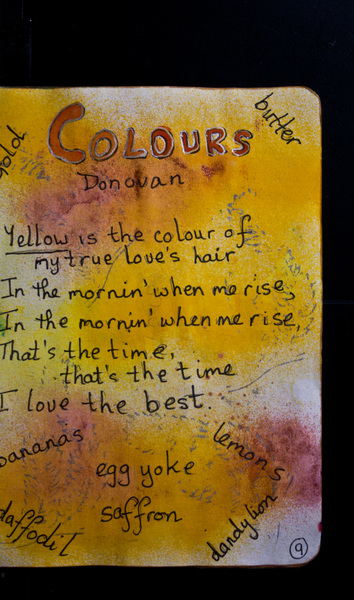 butter
gold
COLOURS
Donovan
Yellow is the colour of
my true love's hair
In the mornin' when me rise,
In the mornin' when me rise,
That's the time,
that's the time
I love the best.
bananas
lemons
egg yoke
saffron
daffodil
dandylion
9